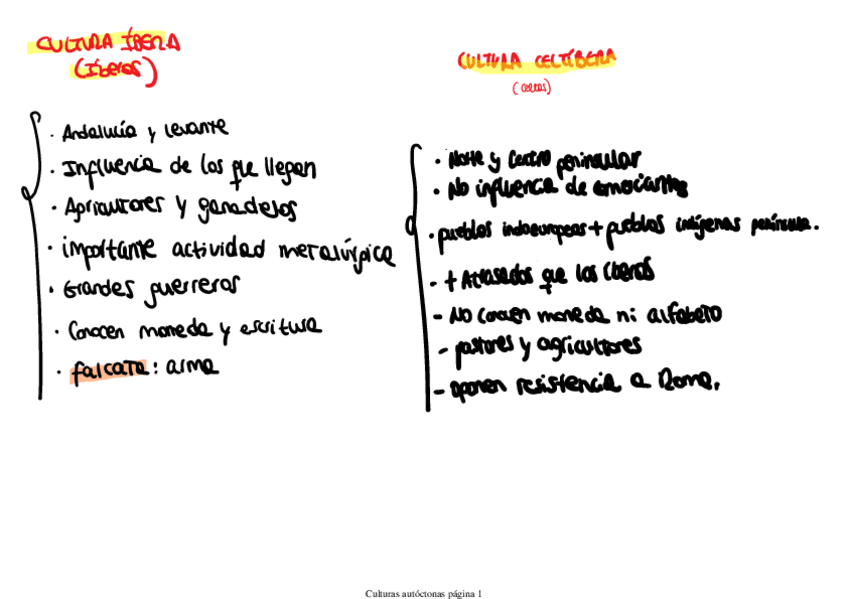 CULTURA ÍBERA
(Íberos)
· Andalucía y levante
· Influencia de los que llegan
· Agricultores y ganaderos
· importante actividad metalúrgica
· Grandes guerreros
· Conocen moneda y escritura
· falcata: arma
CULTURA CELTÍBERA
(celtas)
· Norte y centro peninsular
· No influencia de
· pueblos indoeuropeos + pueblos indígenas península.
- + Atrasados que los íberos
- No conocen moneda ni alfabeto
- pastores y agricultores
- oponen resistencia a Roma.
Culturas autóctonas página 1